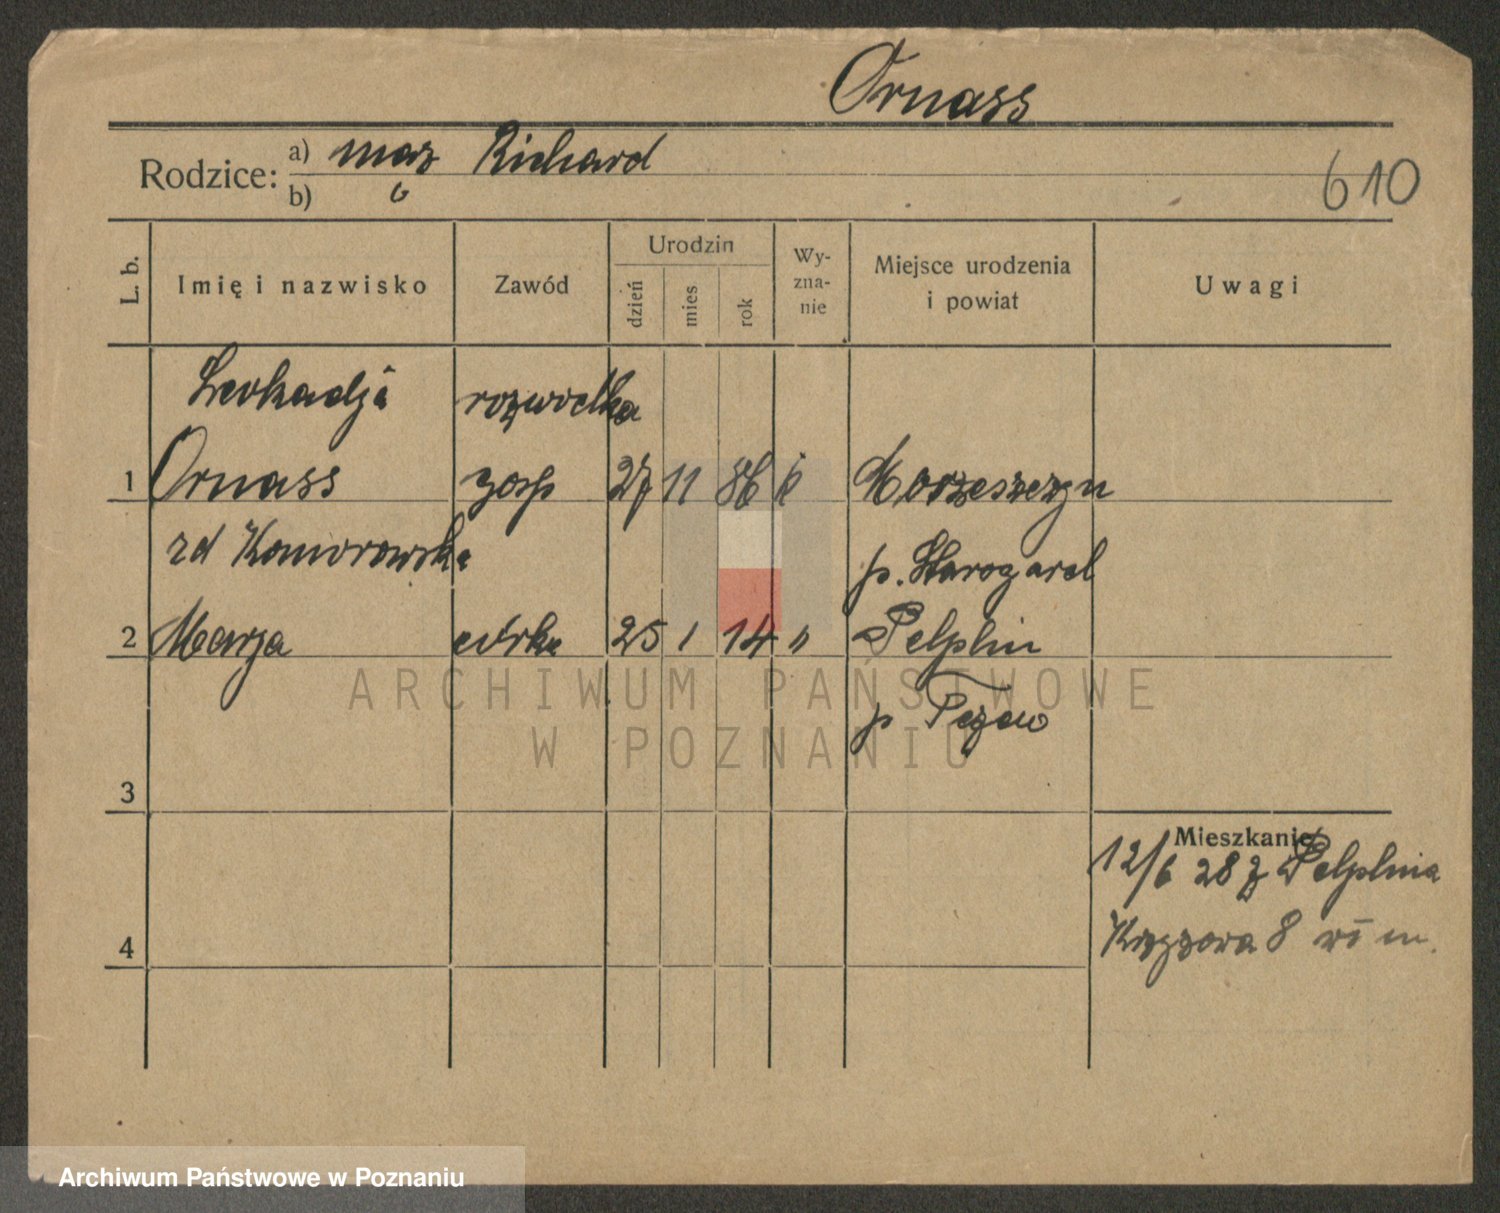 Ornass
Rodzice: a) mąż Richard
b)
610
L. b. Imię i nazwisko Zawód Urodzin dzień mies rok Wyznanie Miejsce urodzenia i powiat Uwagi
Leokadja rozwódka
1 Ornass gosp 27 11 86 k Morzeszczyn
zd Komorowska p. Starogard
2 Marja córka 25 1 14 " Pelplin
p Tczew
ARCHIWUM PAŃSTWOWE
W POZNANIU
3
Mieszkanie
12/6 28 z Pelplina
4 8 m.
Archiwum Państwowe w Poznaniu